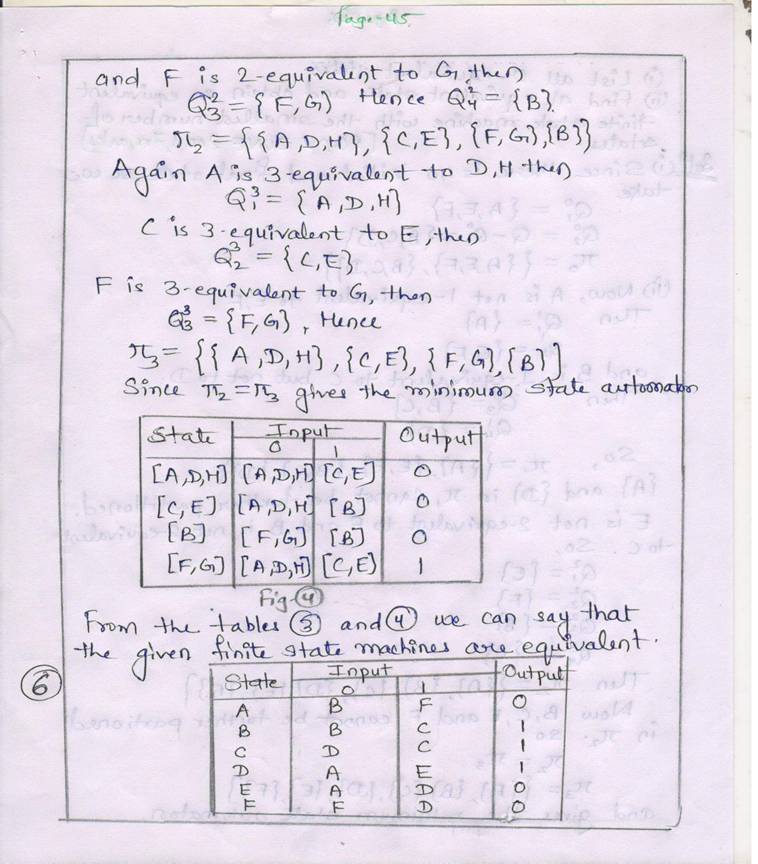 Page-45
and F is 2-equivalent to G, then
Q₃² = {F, G} Hence Q₄² = {B}.
π₂ = {{A, D, H}, {C, E}, {F, G}, {B}}
Again A is 3-equivalent to D, H then
Q₁³ = {A, D, H}
C is 3-equivalent to E, then
Q₂³ = {C, E}
F is 3-equivalent to G, then
Q₃³ = {F, G}, Hence
π₃ = {{A, D, H}, {C, E}, {F, G}, {B}}
Since π₂ = π₃ gives the minimum state automaton
State Input Output
0 1
[A, D, H] [A, D, H] [C, E] 0
[C, E] [A, D, H] [B] 0
[B] [F, G] [B] 0
[F, G] [A, D, H] [C, E] 1
Fig-④
From the tables ③ and ④ we can say that
the given finite state machines are equivalent.
⑥
State Input Output
0 1
A B F 0
B B C 1
C D C 1
D A E 1
E A D 0
F F D 0